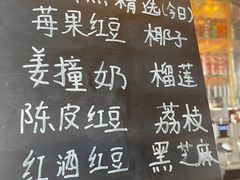 精选(今日)
莓果红豆 椰子
姜撞奶 榴莲
陈皮红豆 荔枝
红酒红豆 黑芝麻